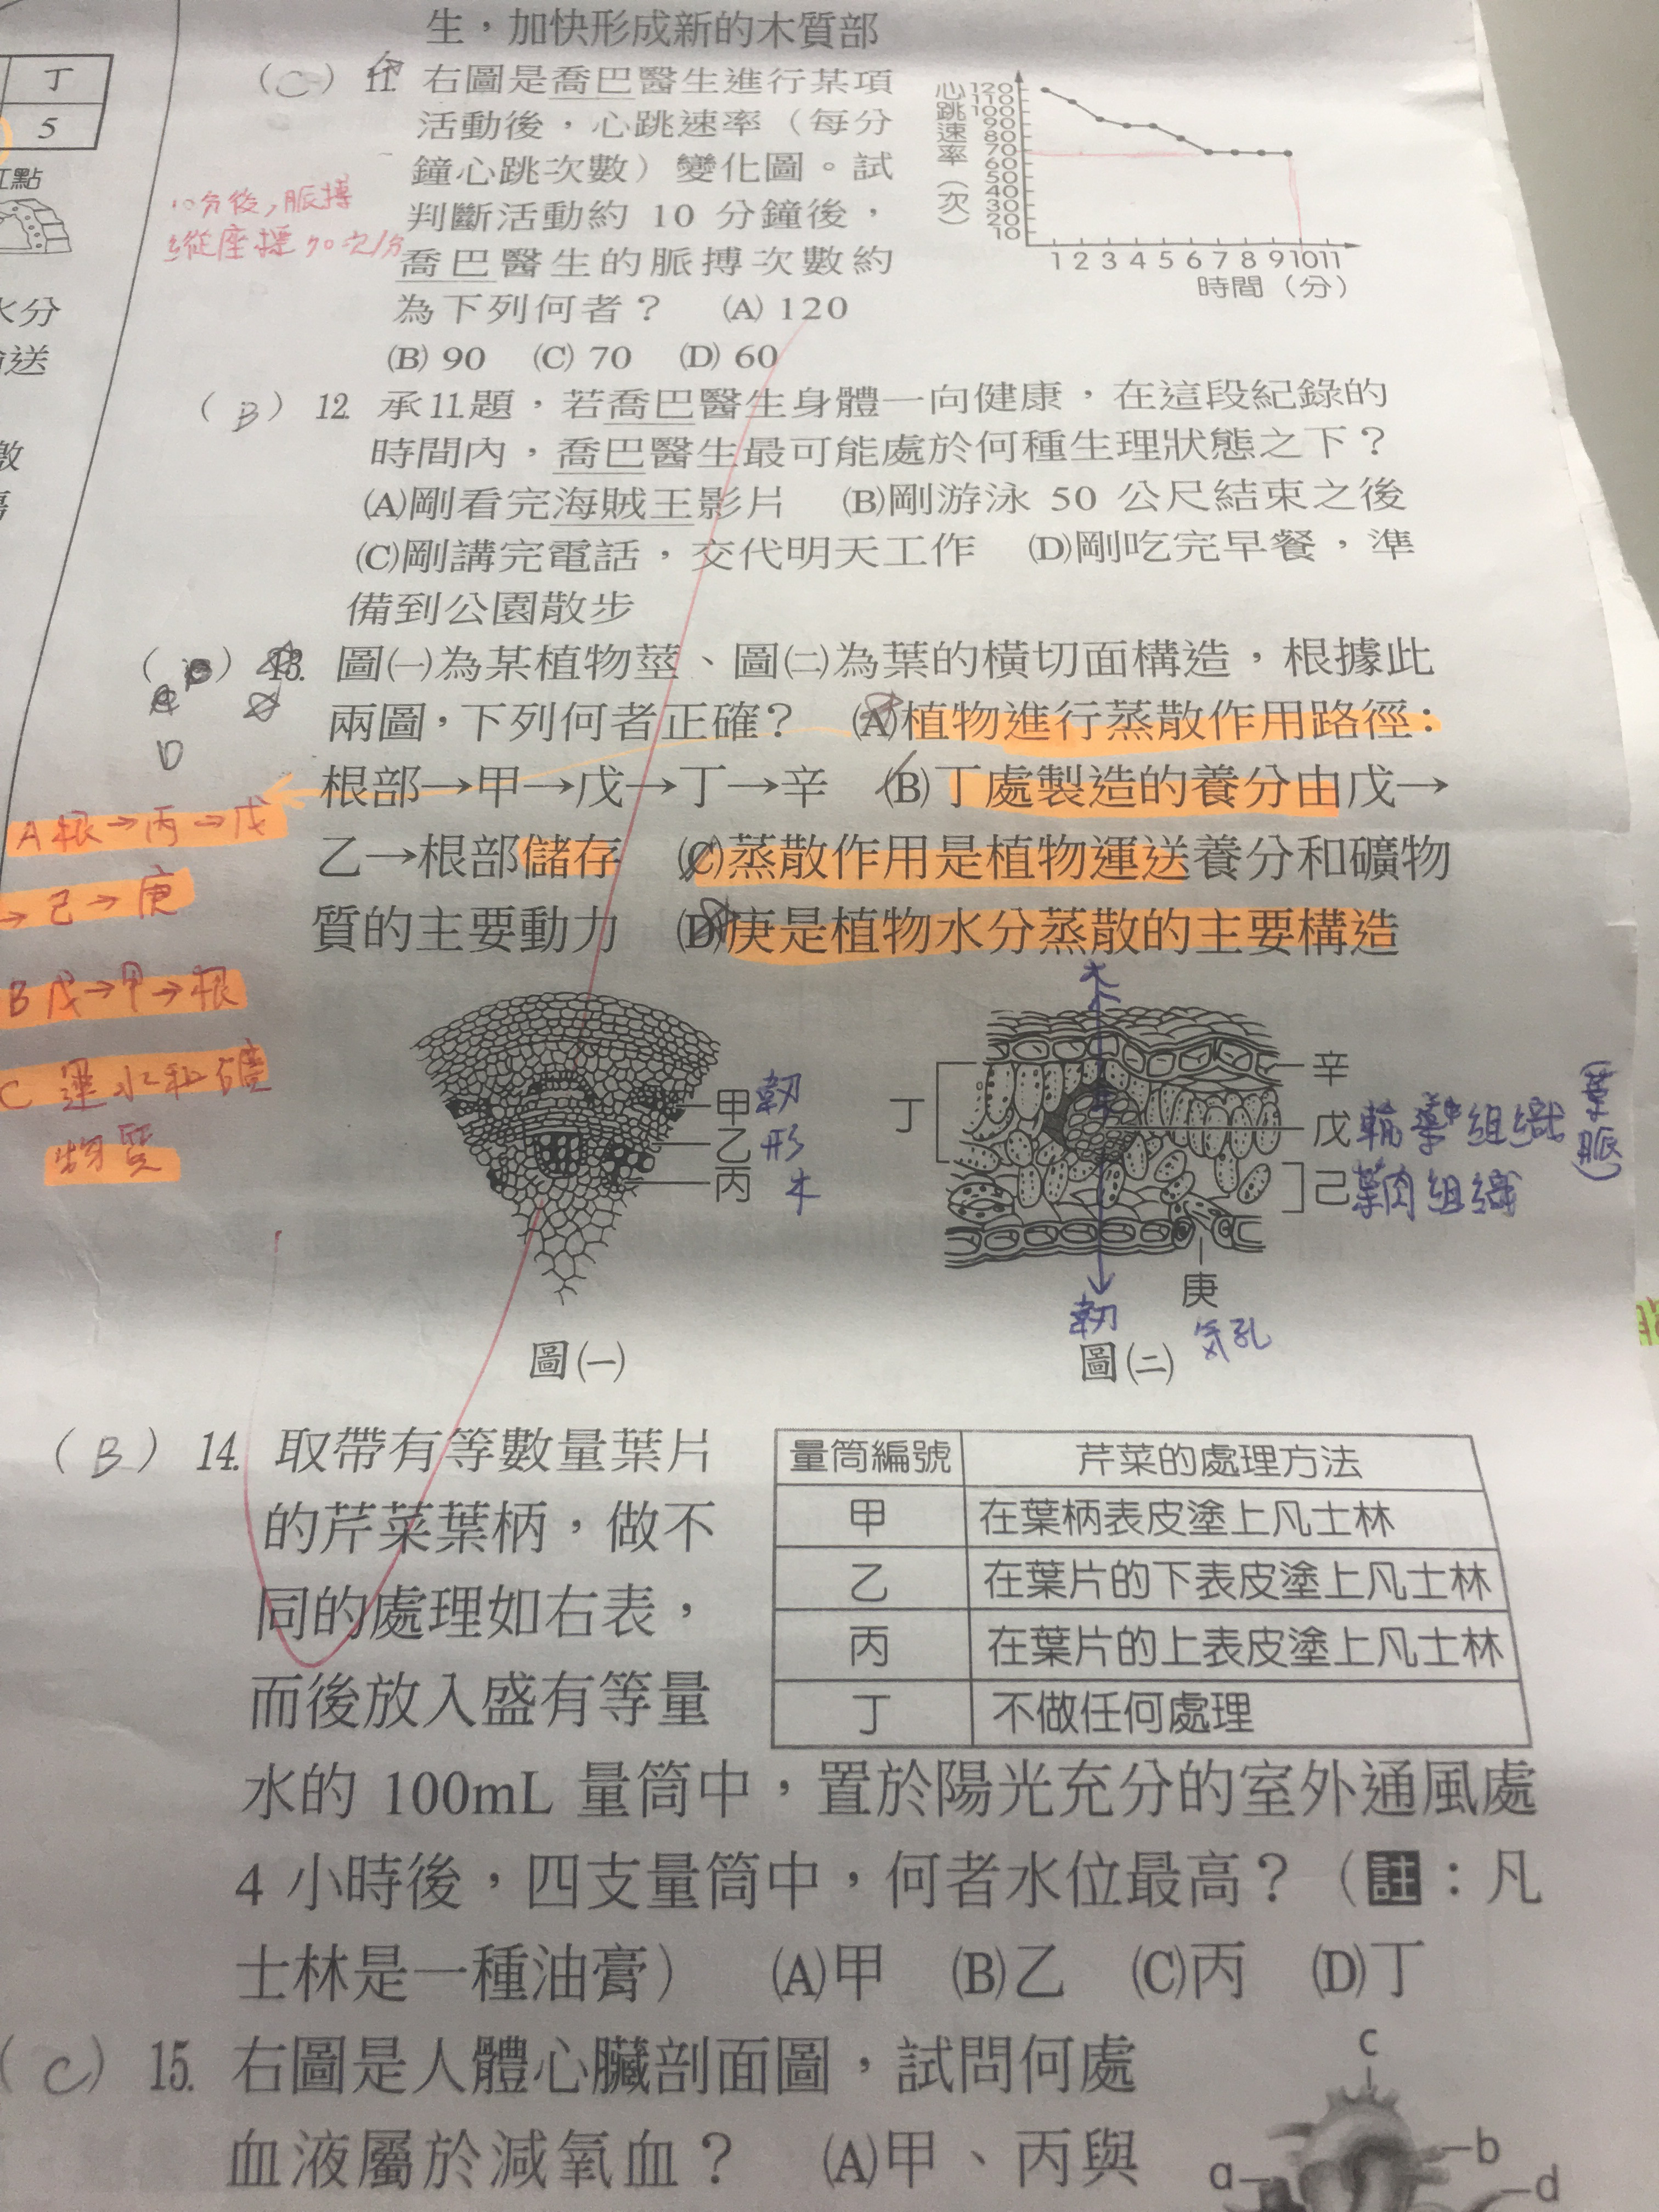 生，加快形成新的木質部
丁
5
紅點
水分
輸送
數
（C）11. 右圖是喬巴醫生進行某項
活動後，心跳速率（每分
鐘心跳次數）變化圖。試
判斷活動約 10 分鐘後，
喬巴醫生的脈搏次數約
為下列何者？ (A) 120
(B) 90 (C) 70 (D) 60
10分後，脈搏
縱座標70次/分
心跳速率（次）
120
110
100
90
80
70
60
50
40
30
20
10
1 2 3 4 5 6 7 8 9 10 11
時間（分）
（B）12. 承11.題，若喬巴醫生身體一向健康，在這段紀錄的
時間內，喬巴醫生最可能處於何種生理狀態之下？
(A)剛看完海賊王影片 (B)剛游泳 50 公尺結束之後
(C)剛講完電話，交代明天工作 (D)剛吃完早餐，準
備到公園散步
（ ）13. 圖㈠為某植物莖、圖㈡為葉的橫切面構造，根據此
D
兩圖，下列何者正確？ (A)植物進行蒸散作用路徑：
根部→甲→戊→丁→辛 (B)丁處製造的養分由戊→
乙→根部儲存 (C)蒸散作用是植物運送養分和礦物
質的主要動力 (D)庚是植物水分蒸散的主要構造
A根→丙→戊
→己→庚
B戊→甲→根
C 運水和礦
物質
甲 韌
乙 形
丙 木
圖㈠
木
丁
辛
戊 輸導組織（葉脈）
己 葉肉組織
庚
韌
気孔
圖㈡
（B）14. 取帶有等數量葉片
的芹菜葉柄，做不
同的處理如右表，
而後放入盛有等量
水的 100mL 量筒中，置於陽光充分的室外通風處
4 小時後，四支量筒中，何者水位最高？（註：凡
士林是一種油膏） (A)甲 (B)乙 (C)丙 (D)丁
量筒編號 芹菜的處理方法
甲 在葉柄表皮塗上凡士林
乙 在葉片的下表皮塗上凡士林
丙 在葉片的上表皮塗上凡士林
丁 不做任何處理
（C）15. 右圖是人體心臟剖面圖，試問何處
血液屬於減氧血？ (A)甲、丙與
c
a
b
d